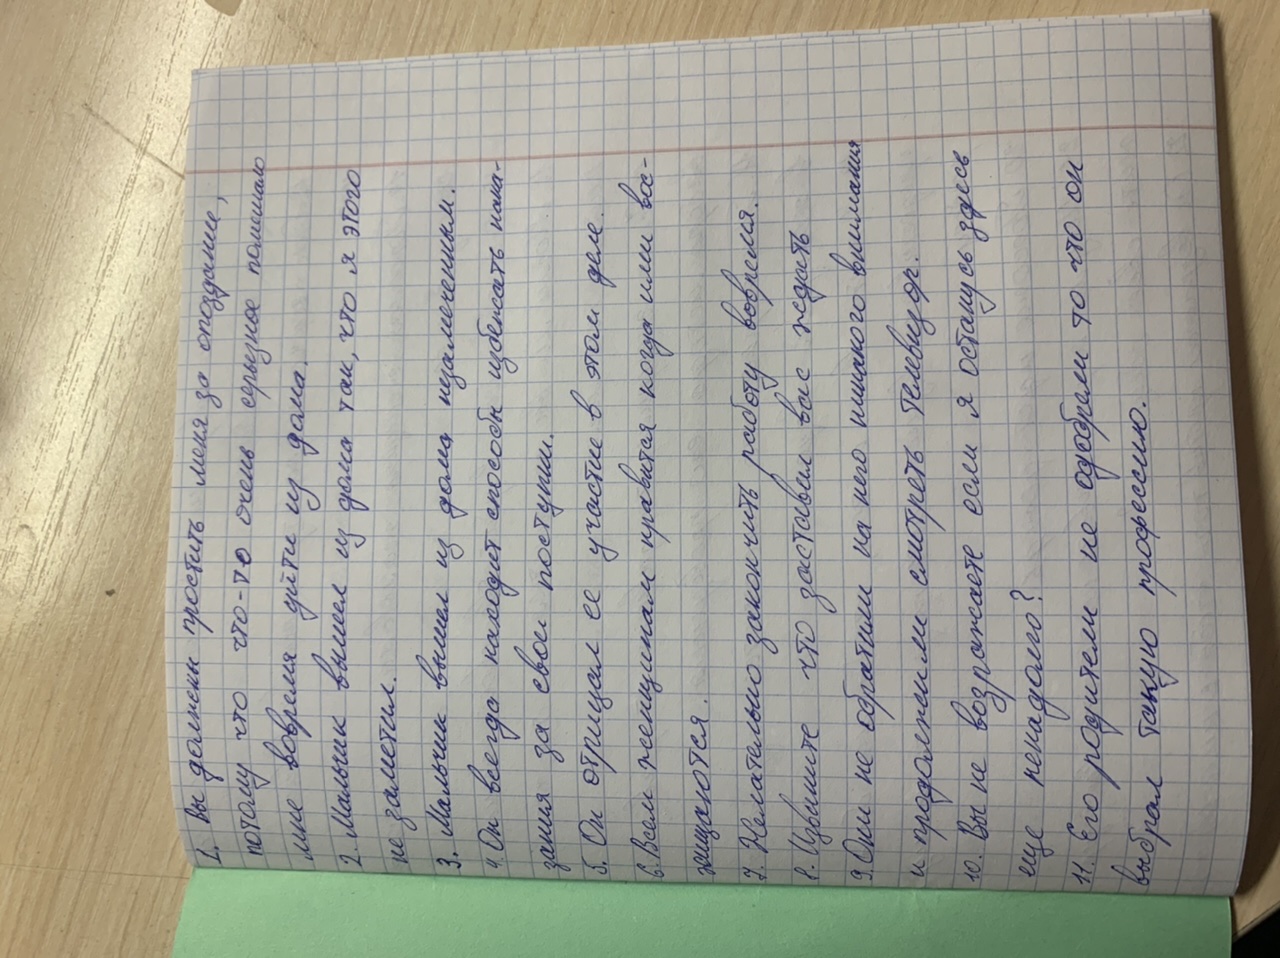 1. Вы должны простить меня за опоздание,
потому что что-то очень серьезное помешало
мне вовремя уйти из дома.
2. Мальчик вышел из дома так, что я этого
не заметил.
3. Мальчик вышел из дома незамеченным.
4. Он всегда находит способы избежать нака-
зания за свои поступки.
5. Он отрицал ее участие в этом деле.
6. Всем женщинам нравится когда ими вос-
хищаются.
7. Желательно закончить работу вовремя.
8. Извините что заставил вас ждать
9. Они не обратили на него никакого внимания
и продолжили смотреть телевизор.
10. Вы не возражаете если я останусь здесь
еще ненадолго?
11. Его родители не одобряли то что он
выбрал такую профессию.